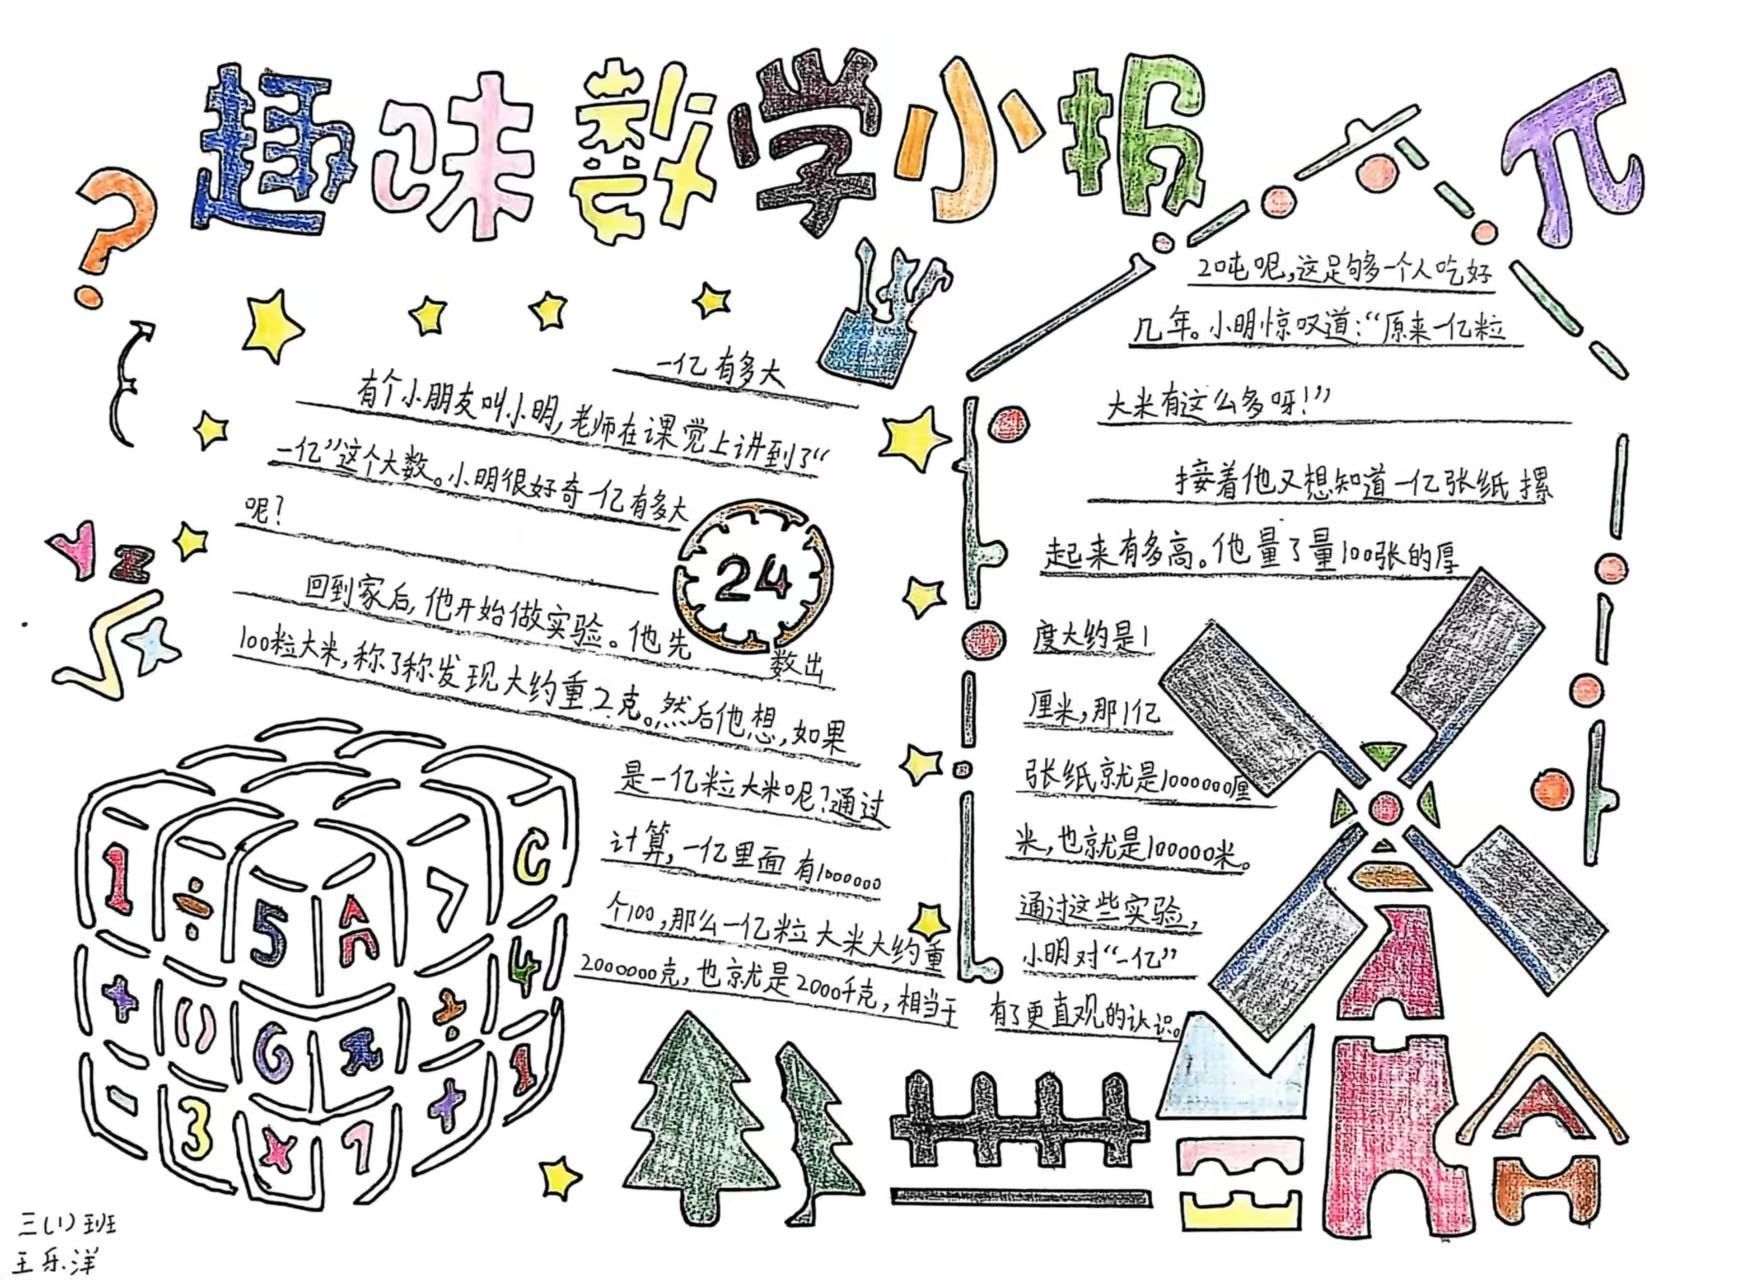 趣味数学小报
?
π
一亿有多大
有个小朋友叫小明,老师在课觉上讲到了“
一亿”这个大数。小明很好奇一亿有多大
呢?
24
回到家后,他开始做实验。他先数出
100粒大米,称了称发现大约重2克。然后他想,如果
是一亿粒大米呢?通过
计算,一亿里面有1000000
个100,那么一亿粒大米大约重
2000000克,也就是2000千克,相当于
20吨呢,这足够一个人吃好
几年。小明惊叹道:“原来一亿粒
大米有这么多呀!”
接着他又想知道一亿张纸摞
起来有多高。他量了量100张的厚
度大约是1
厘米,那1亿
张纸就是1000000厘
米,也就是100000米。
通过这些实验,
小明对“一亿”
有了更直观的认识。
Y Z
√
1 ÷ 5 A 7 C
+ () 6 π ÷ 4
- 3 × 1 + 1
三(1)班
王乐洋